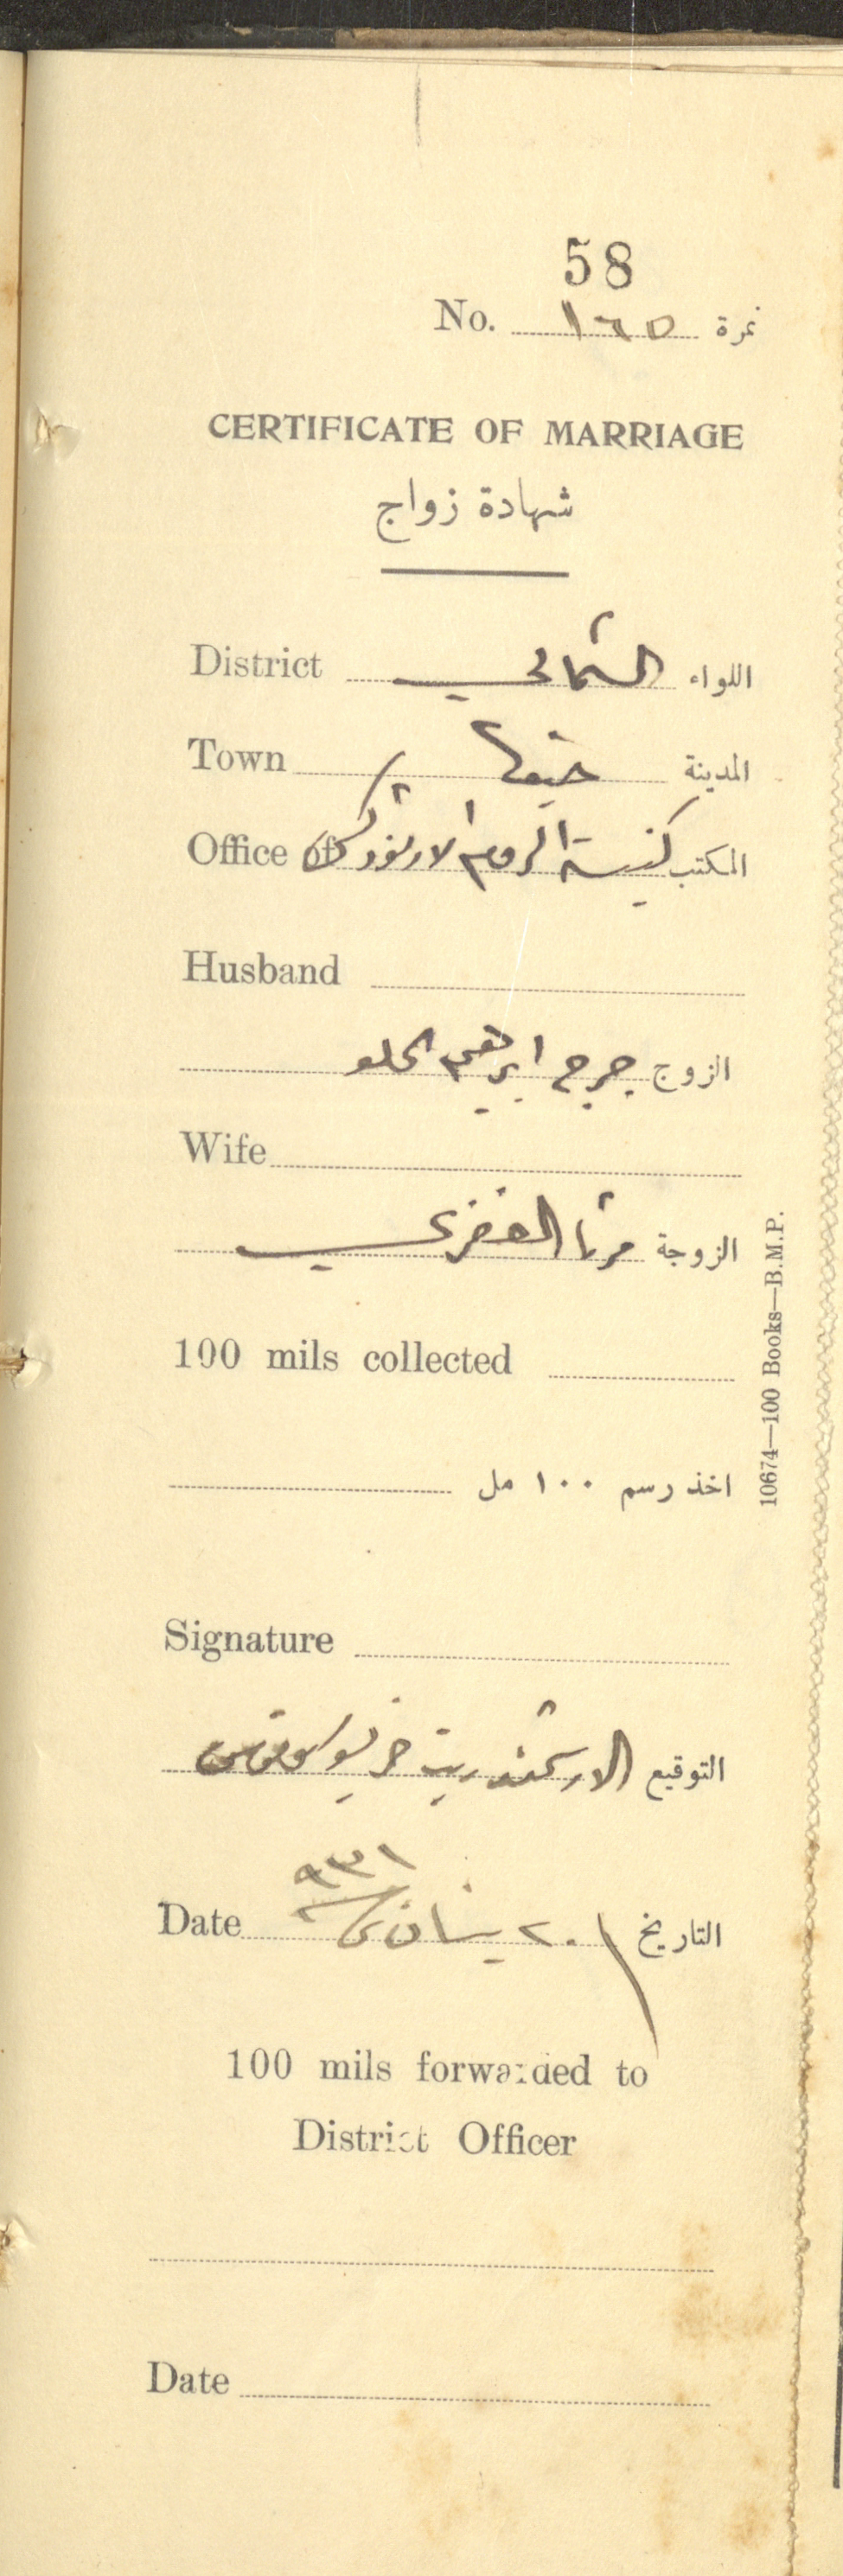 58
No. ١٦٥ نمرة
CERTIFICATE OF MARRIAGE
شهادة زواج
District الشمالي اللواء
Town حيفا المدينة
Office of كنيسة الروم الارثوذكس المكتب
Husband
الزوج جرجي ابرهيم الحلو
Wife
الزوجة مرتا
100 mils collected
اخذ رسم ١٠٠ مل
Signature
التوقيع الارشمندريت
Date ٢٠ نيسان ٩٣١ التاريخ
100 mils forwarded to
District Officer
Date
10674—100 Books—B.M.P.